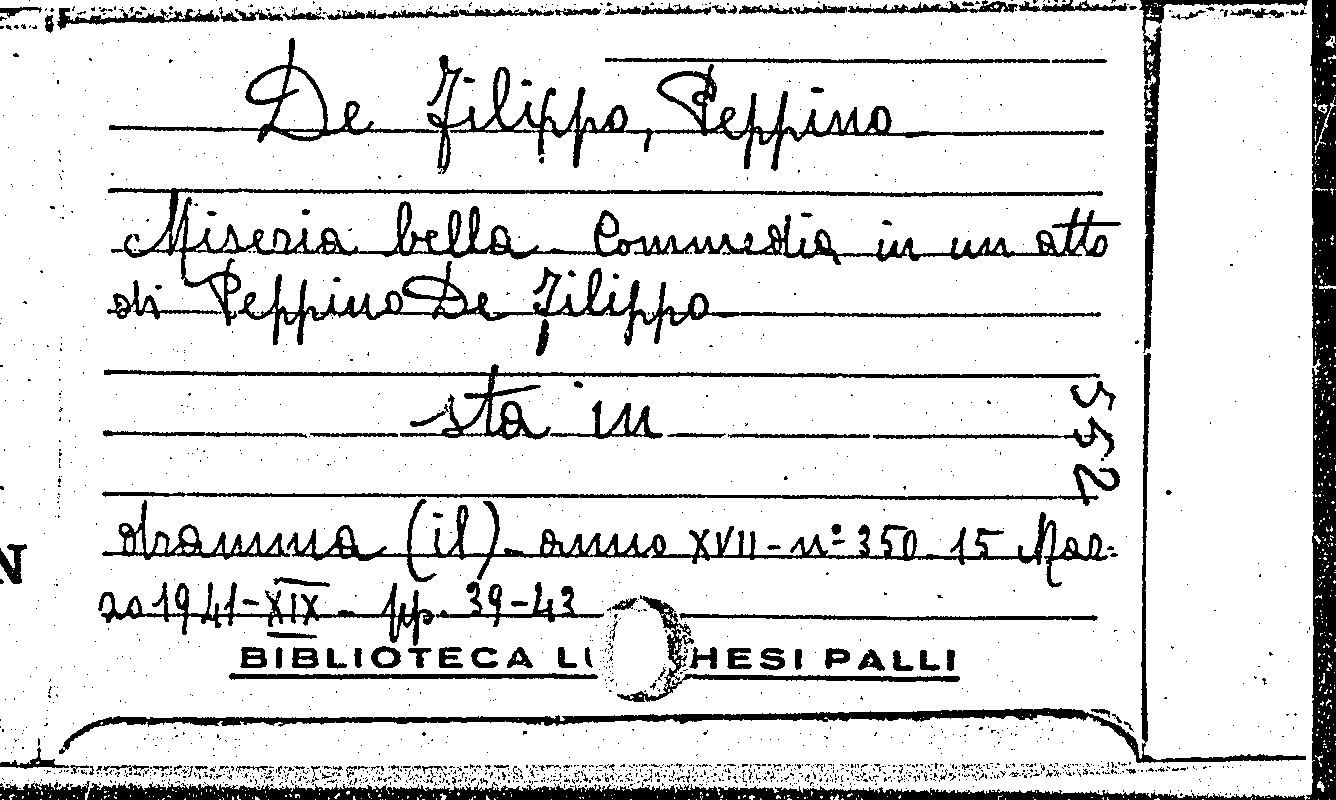 De Filippo, Peppino
Miseria bella. Commedia in un atto
di Peppino De Filippo
sta in
552
dramma (il) - anno XVII - nº 350 - 15 Mar-
zo 1941 - XIX - pp. 39-43
BIBLIOTECA LU HESI PALLI
N